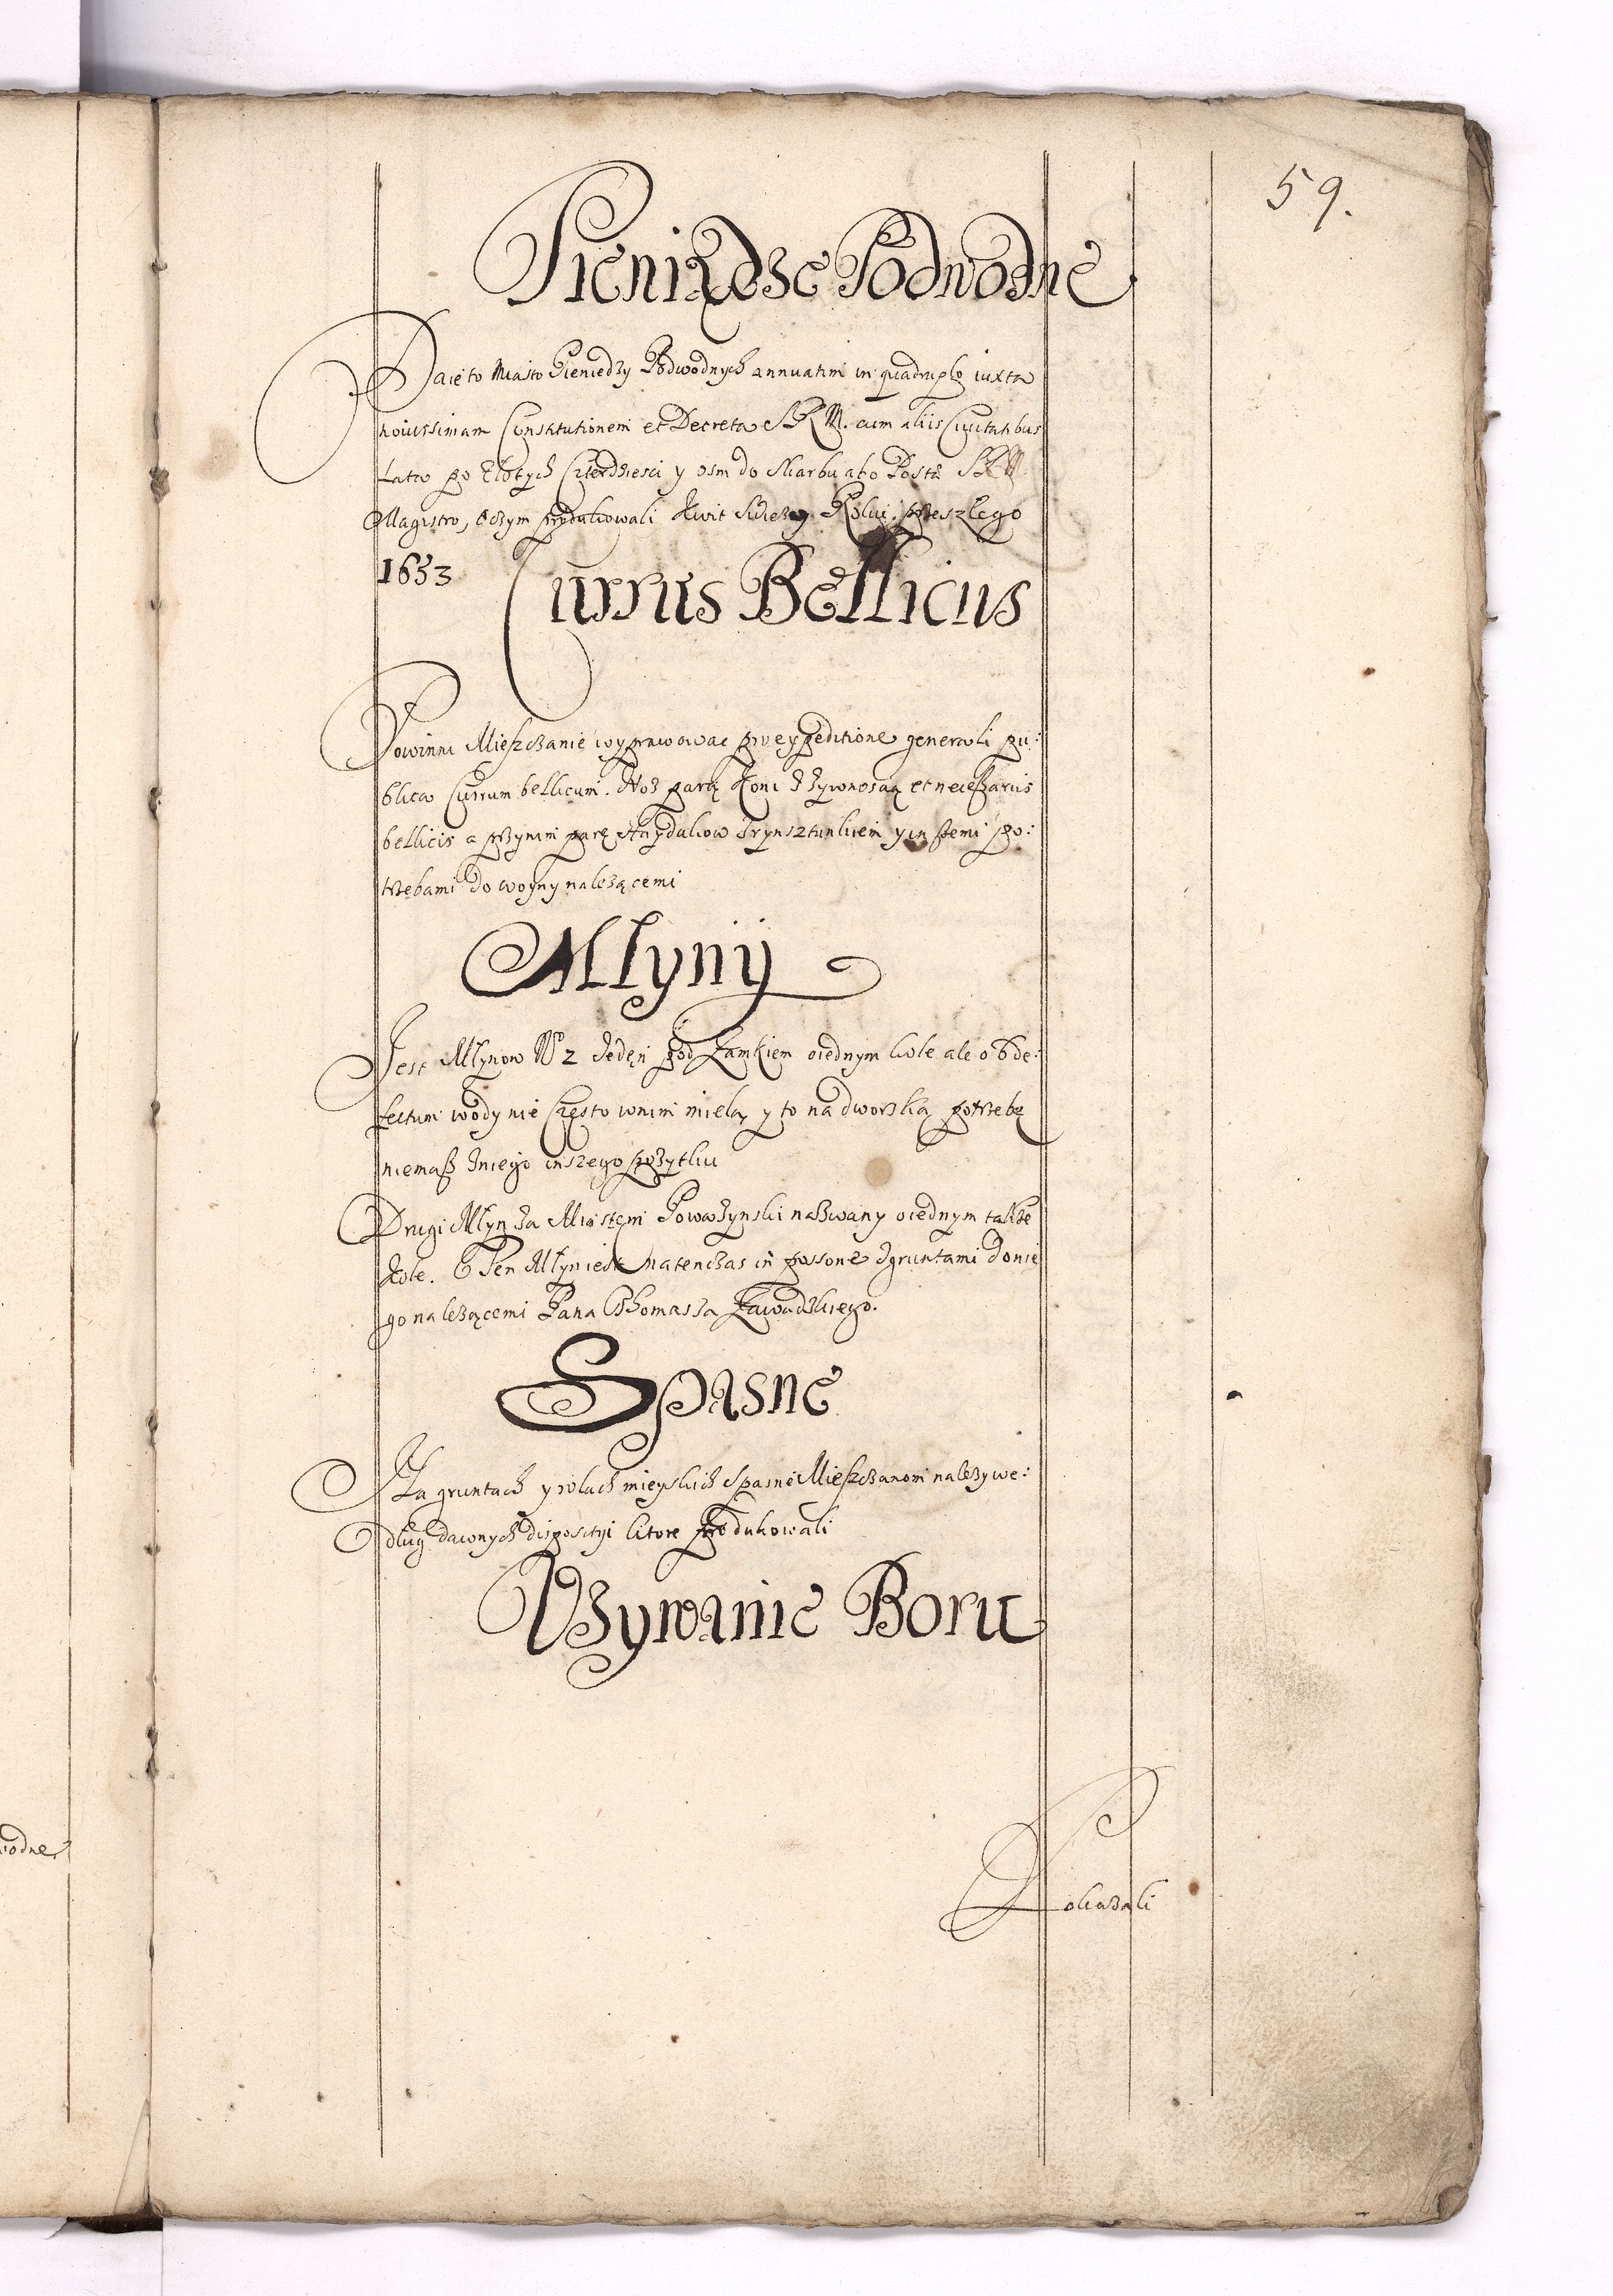 59.
Pieniądze Podwodne
Daie to Miasto Pieniędzy Podwodnych annuatim in quadruplo iuxta
novissimam Constitutionem et Decreta SKRM. cum aliis Civitatibus
Lato po Złotych Czterdziesci y osm do Skarbu abo Postæ SRM
Magistro, oczym produkowali Kwit swiezy Roku przeszłego
1653
Currus Bellicus
Powinni Mieszczanie wyprawowac pro expeditione generali pu:
blica Currum bellicum. Woz parą Koni z Zywnoscią et necessariis
bellicis a przynim parę Haydukow z Rynsztunkiem y inszemi po:
trzebami do woyny nalezącemi
Młyny
Jest Młynow No 2 Jeden pod Zamkiem o iednym kole ale ob de:
fectum wody nie Często wnim mielą y to na dworską potrzebę
niemasz zniego inszego pozytku
Drugi Młyn za Miastem Powazynski nazwany o iednym takze
Kole. Ten Młyn iest natenczas in possone z gruntami do nie
go nalezącemi Pana Thomasza Zawadzkiego.
Spasne
Na gruntach y rolach mieyskich Spasne Mieszczanom nalezy we:
dług dawnych dispositii ktore produkowali
Uzywanie Boru
Pokazali
wodne